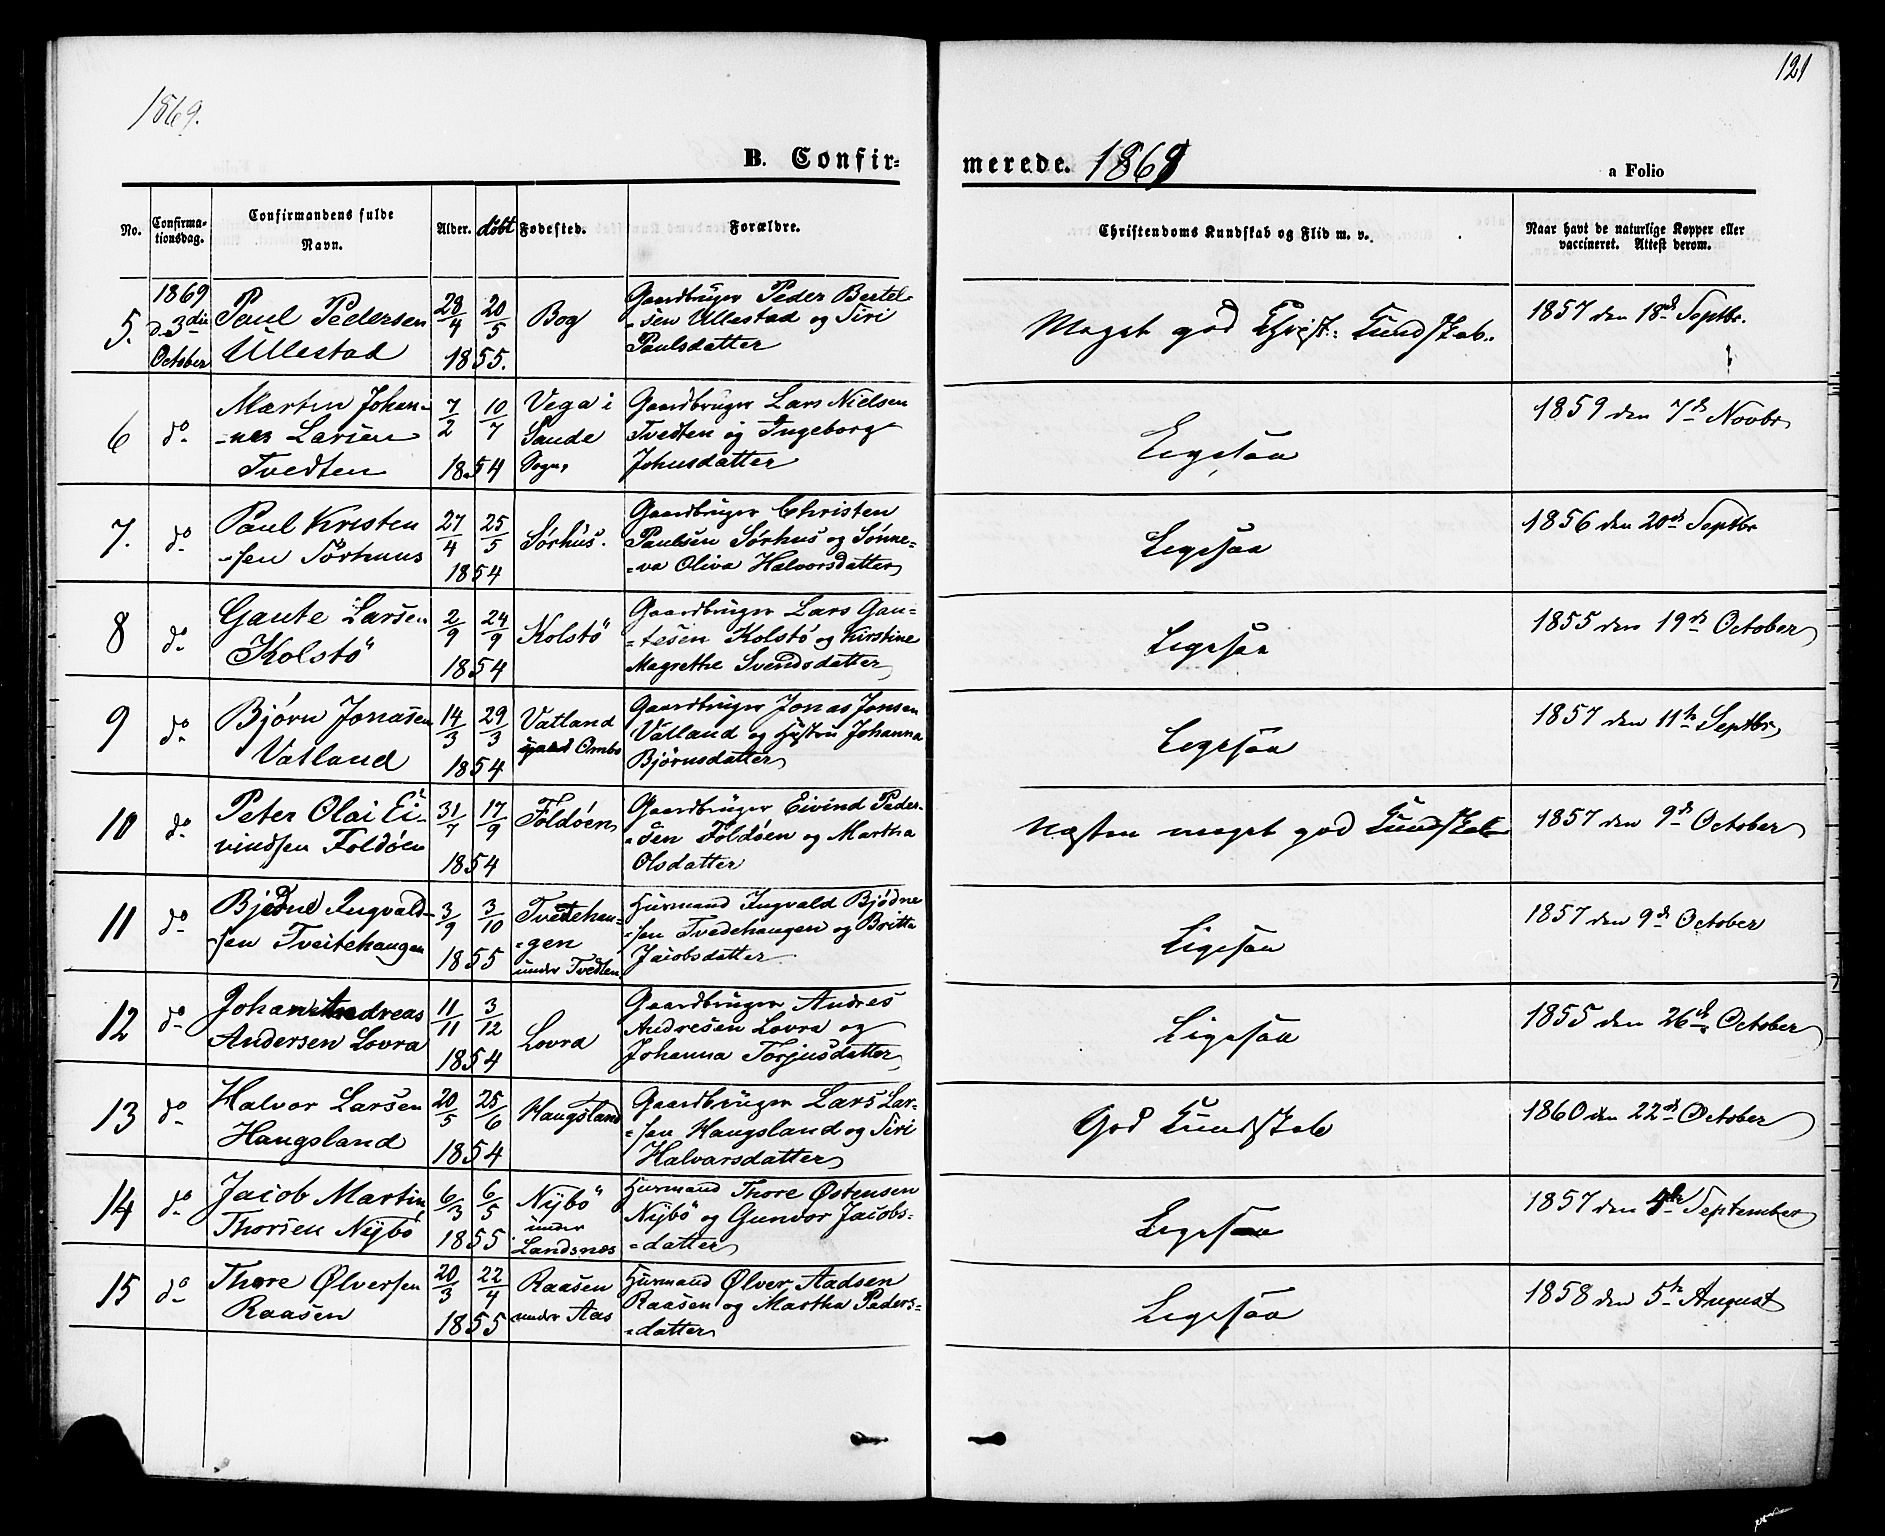 121
1869.
B. Confir-
merede. 1869
a Folio
No.
Confirma-
tionsdag.
Confirmandens fulde
Navn.
Alder.
døbt
Fødested.
Forældre.
Christendoms Kundskab og Flid m. v.
Naar havt de naturlige Kopper eller
vaccineret. Attest derom.
5.
1869
d. 3die
October
Paul Pedersen
Ullestad
28/4 20/5
1855.
Bog
Gaardbruger Peder Bertel-
-sen Ullestad og Siri
Paulsdatter
Meget god Christ: Kundskab.
1857 den 18de Septbr.
6
do
Martin Johan-
-nes Larsen
Tvedten
7/2 10/7
1854
Vega i
Sande
Sogn
Gaardbruger Lars Nielsen
Tvedten og Ingeborg
Johnsdatter
Ligesaa
1859 den 7de Novbr
7.
do
Paul Kristen
-sen Sørhuus
27/4 25/5
1854
Sørhus.
Gaardbruger Christen
Paulsen Sørhus og Sønne-
-va Oliva Halvorsdatter
Ligesaa
1856 den 20de Septbr
8
do
Gaute Larsen
Kolstö
2/9 24/9
1854
Kolstö
Gaardbruger Lars Gau-
-tesen Kolstö og Kirstine
Magrethe Svendsdatter
Ligesaa
1855 den 19de October
9
do
Bjørn Jonasen
Vatland
14/3 29/3
1854
Vatland
Ombo
Gaardbruger Jonas Jonsen
Vatland og Hustru Johanna
Bjørnsdatter
Ligesaa
1857 den 11te Septbr
10
do
Peter Olai Ei-
vindsen Foldöen
31/7 17/9
1854
Foldöen
Gaardbruger Eivind Peder-
-sen Foldöen og Martha
Olsdatter
Næsten meget god Kundskab
1857 den 9de October
11
do
Bjødne Ingvald-
-sen Tveitehaugen
3/9 3/10
1855
Tvedtehau-
-gen
under Tvedten
Husmand Ingvald Bjødne
-sen Tvedehaugen og Britta
Jacobsdatter
Ligesaa
1857 den 9de October
12
do
Johan Andreas
Andersen Lovra
11/11 3/12
1854
Lovra
Gaardbruger Andres
Andresen Lovra og
Johanna Torjusdatter
Ligesaa
1855 den 26de October
13
do
Halvor Larsen
Haugsland
20/5 25/6
1854
Haugsland
Gaardbruger Lars Lar-
-sen Haugsland og Siri
Halvarsdatter
God Kundskab
1860 den 22de October
14
do
Jacob Martin
Thorsen Nybö
6/3 6/5
1855
Nybö
under
Landsnes
Husmand Thore Østensen
Nybö og Gunvor Jacobs-
-datter
Ligesaa
1857 den 4de September
15
do
Thore Ølversen
Raasen
20/3 22/4
1855
Raasen
under Aas
Husmand Ølver Aadsen
Raasen og Martha Peders-
-datter
Ligesaa
1858 den 5te August